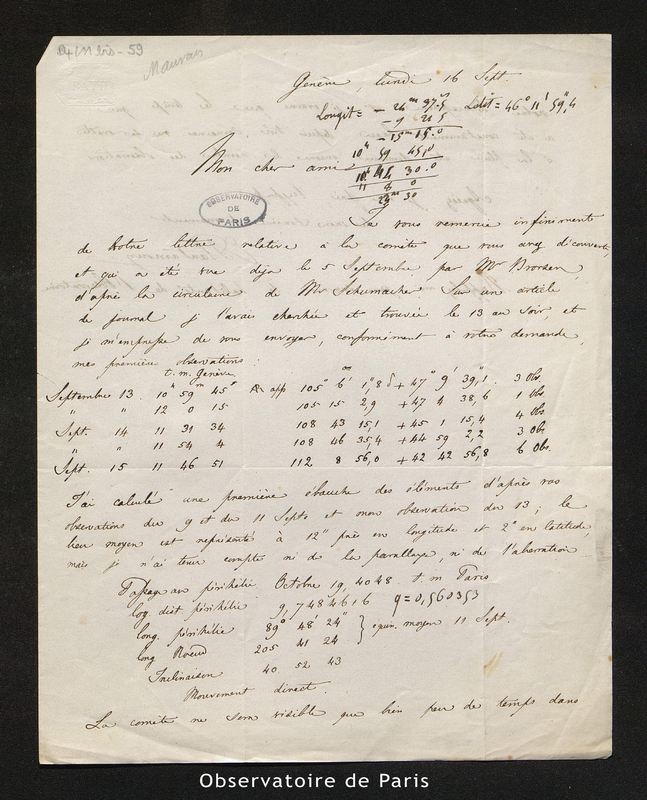 Mauvais
Genève, lundi 16 Sept.
Longit = - 24 m 37.5 Latit = 46° 11' 59",4
- 9 21 5
- 15 m 15.0
Mon cher ami 10 h 59 45,0
30.0
11 8 0
30
OBSERVATOIRE
DE
PARIS
Je vous remercie infiniment
de votre lettre relative à la comète que vous avez découverte,
et qui a été vue déja le 5 Septembre par Mr Brorsen,
d'après la circulaire de Mr Schumacher. Sur un article
de journal je l'avais cherchée et trouvée le 13 au soir, et
je m'empresse de vous envoyer, conformément à votre demande,
mes premières observations:
t. m. Genève
Septembre 13. 10 h 59 m 45 s AR app 105° 6' 1",8 δ + 47° 9' 39",1. 3 Obs.
" " 12 0 15 105 15 2,9 + 47 4 38,6 1 Obs
Sept. 14 11 31 34 108 43 15,1 + 45 1 15,4 4 Obs
" " 11 54 4 108 46 35,4 + 44 59 2,2 3 Obs
Sept. 15 11 46 51 112 8 56,0 + 42 42 56,8 6 Obs.
J'ai calculé une première ébauche des élémens d'après vos
observations du 9 et du 11 Septe et mon observation du 13; le
lieu moyen est représenté à 12" près en longitude et 2" en latitude,
mais je n'ai tenu compte ni de la parallaxe, ni de l'aberration
Passage au périhélie Octobre 19, 4048. t. m. Paris
log. dist périhélie 9,7484616 q = 0,560353
long. périhélie 89° 48' 24 } equin. moyen 11 Sept.
long Noeud 205 41 24
Inclinaison 40 52 43
Mouvement direct.
La comète ne sera visible que bien peu de temps dans
Observatoire de Paris